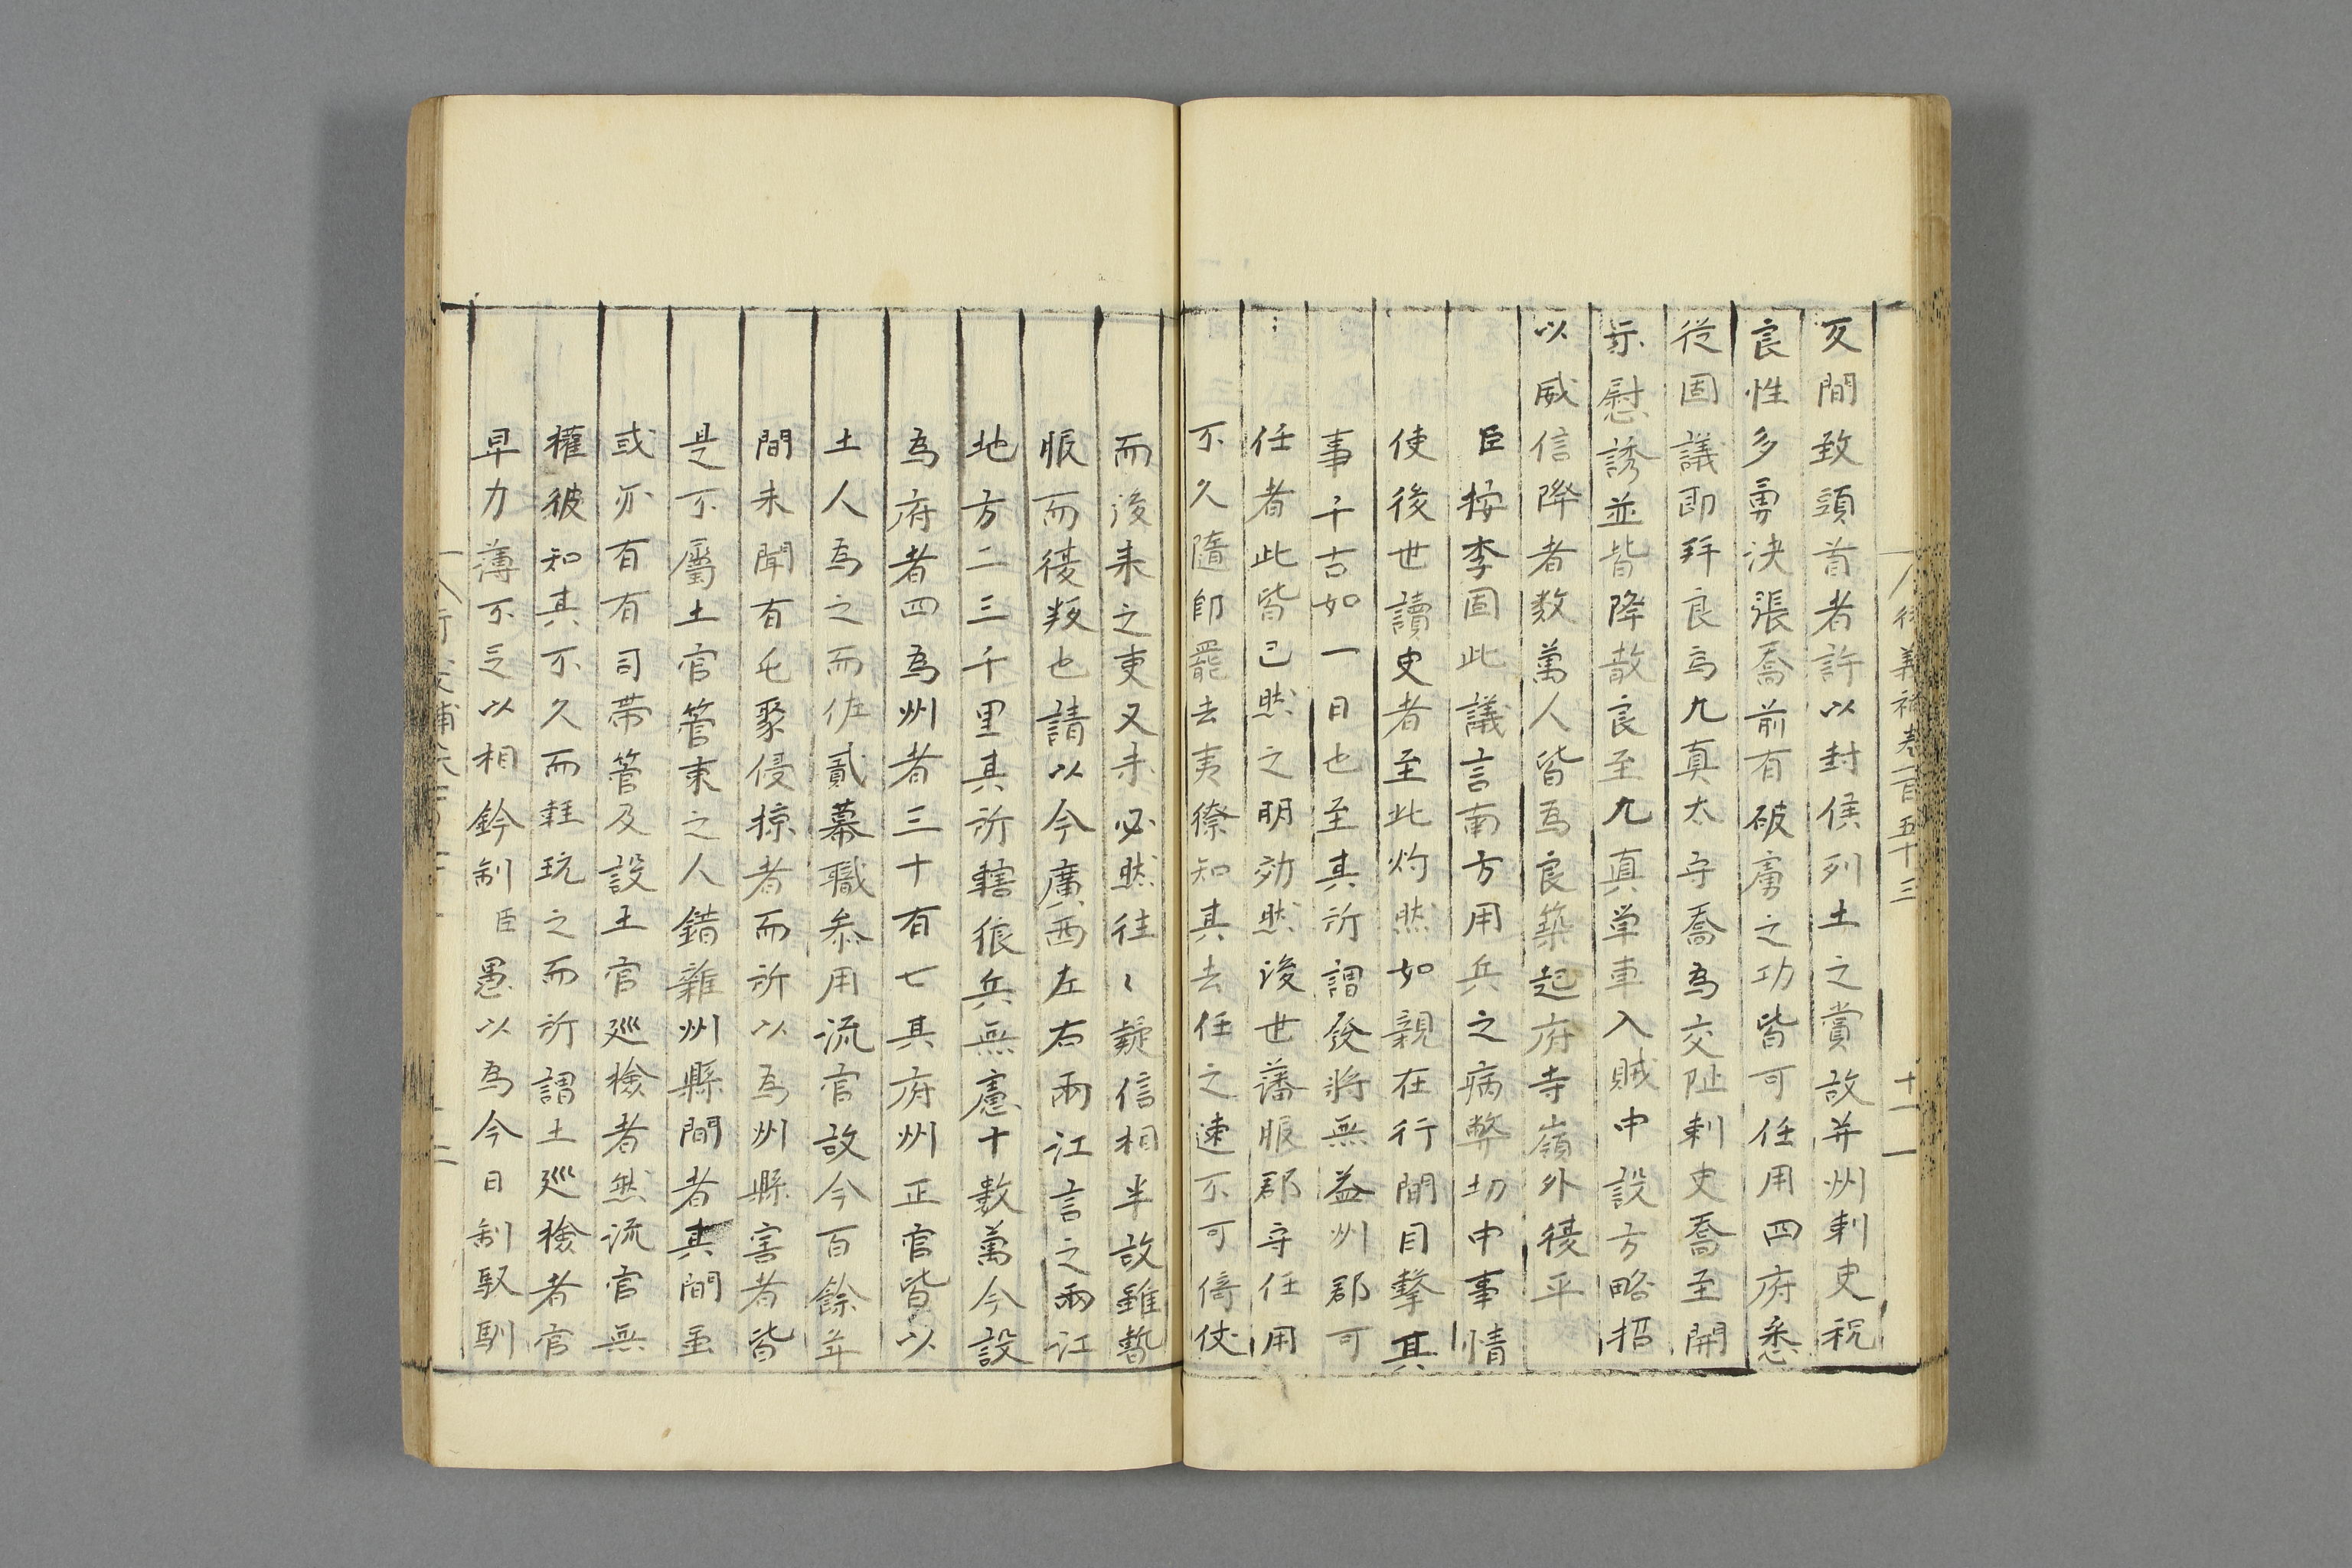 衍義補卷一百五十三
十一
反間致頭首者許以封侯列土之賞故并州刺史祝
良性多勇决張喬前有破虜之功皆可任用四府悉
從固議即拜良為九真太守喬為交阯刺史喬至開
示慰誘並皆降散良至九真单車入賊中設方略招
以威信降者数萬人皆為良築起府寺嶺外復平
臣按李固此議言南方用兵之病弊切中事情
使後世讀史者至此灼然如親在行間目擊其
事千古如一日也至其所謂發將無益州郡可
任者此皆已然之明効然後世藩服郡守任用
不久隨即罷去夷獠知其去任之速不可倚仗
而後来之吏又未必然往〻疑信相半故雖暫
服而後叛也請以今廣西左右兩江言之兩江
地方二三千里其所轄狼兵無慮十数萬今設
為府者四為州者三十有七其府州正官皆以
土人為之而佐貳幕職参用流官故今百餘年
間未聞有屯聚侵掠者而所以為州縣害者皆
是不屬土官管束之人錯雜州縣間者其間虽
或亦有有司帶管及設土官巡檢者然流官無
權彼知其不久而輕玩之而所謂土巡檢者官
早力薄不足以相鈐制臣愚以為今日制馭馴